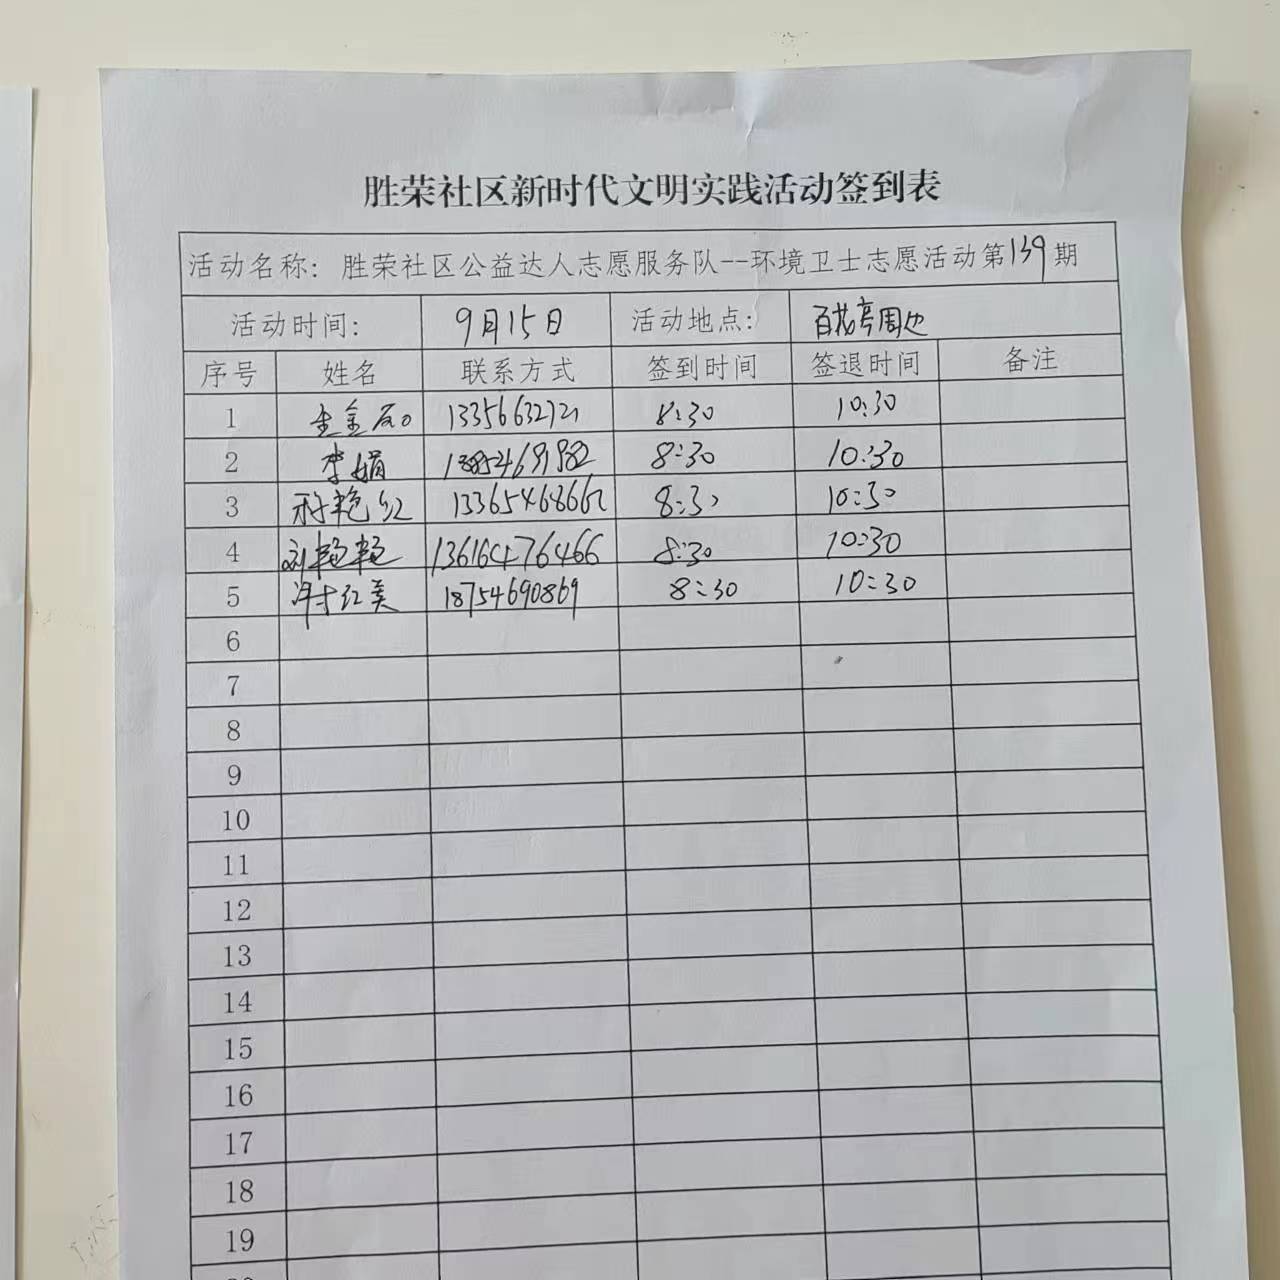 胜荣社区新时代文明实践活动签到表
活动名称：胜荣社区公益达人志愿服务队--环境卫士志愿活动第139期
活动时间： 9月15日 活动地点： 百花亭周边
序号 姓名 联系方式 签到时间 签退时间 备注
1 8:30 10:30
2 李娟 8:30 10:30
3 艳红 13365468662 8:30 10:30
4 刘艳艳 13616476466 8:30 10:30
5 许红美 18754690869 8:30 10:30
6
7
8
9
10
11
12
13
14
15
16
17
18
19